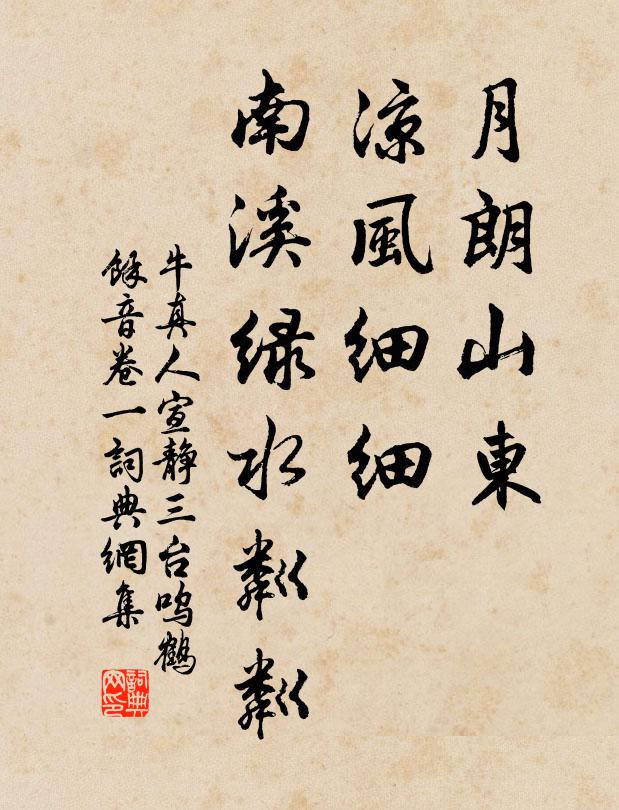 月朗山東
凉風细细
南溪绿水粼粼
牛真人宣静三台鸣鹤
餘音卷一詞典網集
詞典
网印